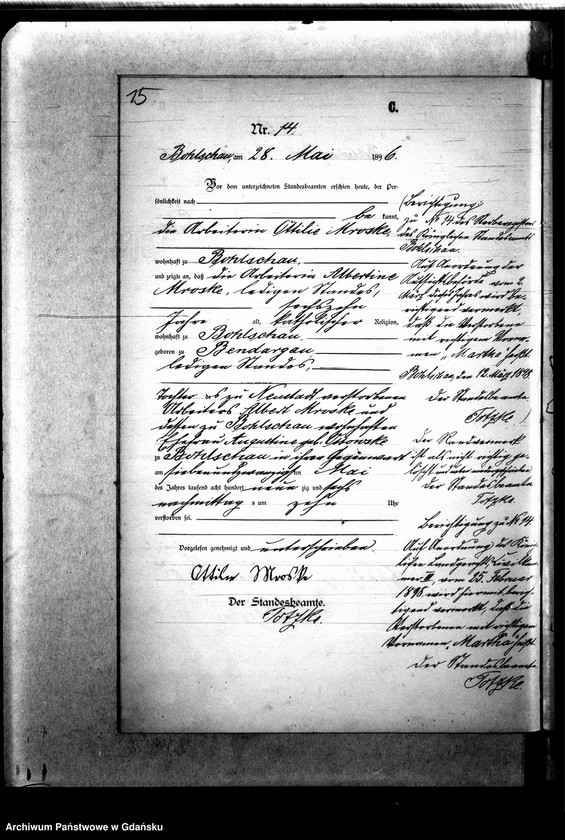 15
C.
Nr. 14.
Bohlschau, am 28. Mai 1896.
Vor dem unterzeichneten Standesbeamten erschien heute, der Per-
sönlichkeit nach
be kannt,
die Arbeiterin Ottilie Mroske,
wohnhaft zu Bohlschau,
und zeigte an, daß die Arbeiterin Albertine
Mroske, ledigen Standes,
sechszehn
Jahre alt, katholischer Religion,
wohnhaft zu Bohlschau,
geboren zu Bendargau,
ledigen Standes,
Tochter des zu Neustadt verstorbenen
Arbeiters Albert Mroske und
dessen zu Bohlschau wohnhaften
Ehefrau Auguttine geb.
zu Bohlschau in ihrer Gegenwart
am siebenundzwanzig ten Mai
des Jahres tausend acht hundert neun zig und sechs
nachmittags um zehn Uhr
verstorben sei.
Vorgelesen, genehmigt und unterschrieben.
Ottilie Mroske
Der Standesbeamte.
Totzke.
(Berichtigung:
zu No 14 des Sterberegisters
des Königlichen Standesamts
Bohlschau.
Auf Anordnung der
Aufsichtsbehörde vom 2.
März dieses Jahres wird be-
richtigend vermerkt,
daß die Verstorbene
mit richtigem Vorna-
men "Martha" heißt.
Bohlschau, den 12. März 1898.
Der Standesbeamte
Totzke.)
Der Randvermerk
ist als nicht richtig ge-
löscht
Der Standesbeamte
Totzke.
Berichtigung zu No 14.
Auf Anordnung des König-
lichen Landgerichts, Zivilkam-
mer II, vom 25. Februar
1898 wird hiermit berich-
tigend vermerkt, daß die
Verstorbene mit richtigem
Vornamen "Martha" heißt.
Der Standesbeamte
Totzke.
Archiwum Państwowe w Gdańsku